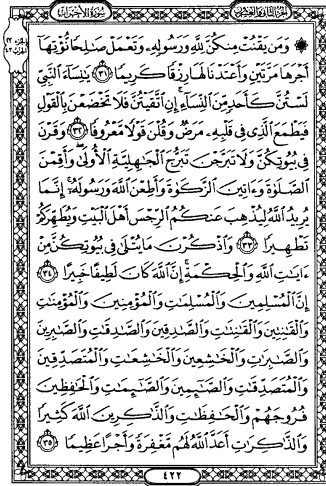 الجزء الثاني والعشرون سورة الأحزاب
۞ وَمَن يَقْنُتْ مِنكُنَّ لِلَّهِ وَرَسُولِهِۦ وَتَعْمَلْ صَٰلِحًا نُّؤْتِهَآ
أَجْرَهَا مَرَّتَيْنِ وَأَعْتَدْنَا لَهَا رِزْقًا كَرِيمًا ٣١ يَٰنِسَآءَ ٱلنَّبِيِّ
لَسْتُنَّ كَأَحَدٍ مِّنَ ٱلنِّسَآءِ إِنِ ٱتَّقَيْتُنَّ فَلَا تَخْضَعْنَ بِٱلْقَوْلِ
فَيَطْمَعَ ٱلَّذِي فِي قَلْبِهِۦ مَرَضٌ وَقُلْنَ قَوْلًا مَّعْرُوفًا ٣٢ وَقَرْنَ
فِي بُيُوتِكُنَّ وَلَا تَبَرَّجْنَ تَبَرُّجَ ٱلْجَٰهِلِيَّةِ ٱلْأُولَىٰ وَأَقِمْنَ
ٱلصَّلَوٰةَ وَءَاتِينَ ٱلزَّكَوٰةَ وَأَطِعْنَ ٱللَّهَ وَرَسُولَهُۥٓ إِنَّمَا
يُرِيدُ ٱللَّهُ لِيُذْهِبَ عَنكُمُ ٱلرِّجْسَ أَهْلَ ٱلْبَيْتِ وَيُطَهِّرَكُمْ
تَطْهِيرًا ٣٣ وَٱذْكُرْنَ مَا يُتْلَىٰ فِي بُيُوتِكُنَّ مِنْ
ءَايَٰتِ ٱللَّهِ وَٱلْحِكْمَةِ إِنَّ ٱللَّهَ كَانَ لَطِيفًا خَبِيرًا ٣٤
إِنَّ ٱلْمُسْلِمِينَ وَٱلْمُسْلِمَٰتِ وَٱلْمُؤْمِنِينَ وَٱلْمُؤْمِنَٰتِ
وَٱلْقَٰنِتِينَ وَٱلْقَٰنِتَٰتِ وَٱلصَّٰدِقِينَ وَٱلصَّٰدِقَٰتِ وَٱلصَّٰبِرِينَ
وَٱلصَّٰبِرَٰتِ وَٱلْخَٰشِعِينَ وَٱلْخَٰشِعَٰتِ وَٱلْمُتَصَدِّقِينَ
وَٱلْمُتَصَدِّقَٰتِ وَٱلصَّٰٓئِمِينَ وَٱلصَّٰٓئِمَٰتِ وَٱلْحَٰفِظِينَ
فُرُوجَهُمْ وَٱلْحَٰفِظَٰتِ وَٱلذَّٰكِرِينَ ٱللَّهَ كَثِيرًا
وَٱلذَّٰكِرَٰتِ أَعَدَّ ٱللَّهُ لَهُم مَّغْفِرَةً وَأَجْرًا عَظِيمًا ٣٥
٤٢٢